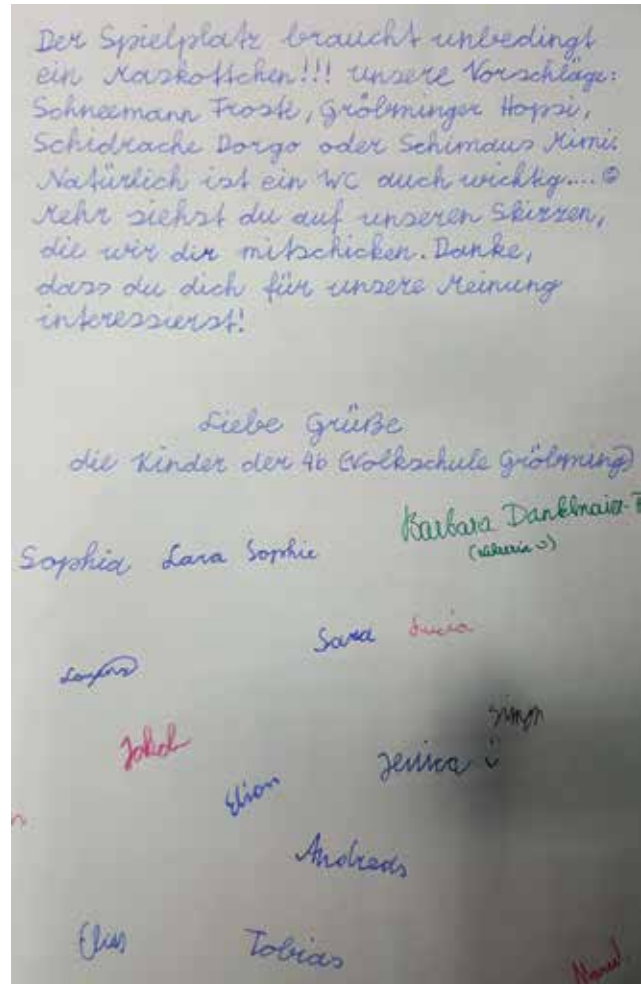 Der Spielplatz braucht unbedingt
ein Maskottchen!!! Unsere Vorschläge:
Schneemann Frosti, Gröbminger Hopsi,
Schidrache Dorgo oder Schimaus Mimi.
Natürlich ist ein WC auch wichtig.... ☺
Mehr siehst du auf unseren Skizzen,
die wir dir mitschicken. Danke,
dass du dich für unsere Meinung
interessierst!
Liebe Grüße
die Kinder der 4b (Volkschule Gröbming)
Barbara Danklmaier-
(Lehrerin ☺)
Sophia Lara Sophie
Sara Lucia
Simon
Jakob
Jessica
Elion
Andreas
Elias Tobias
Marcel